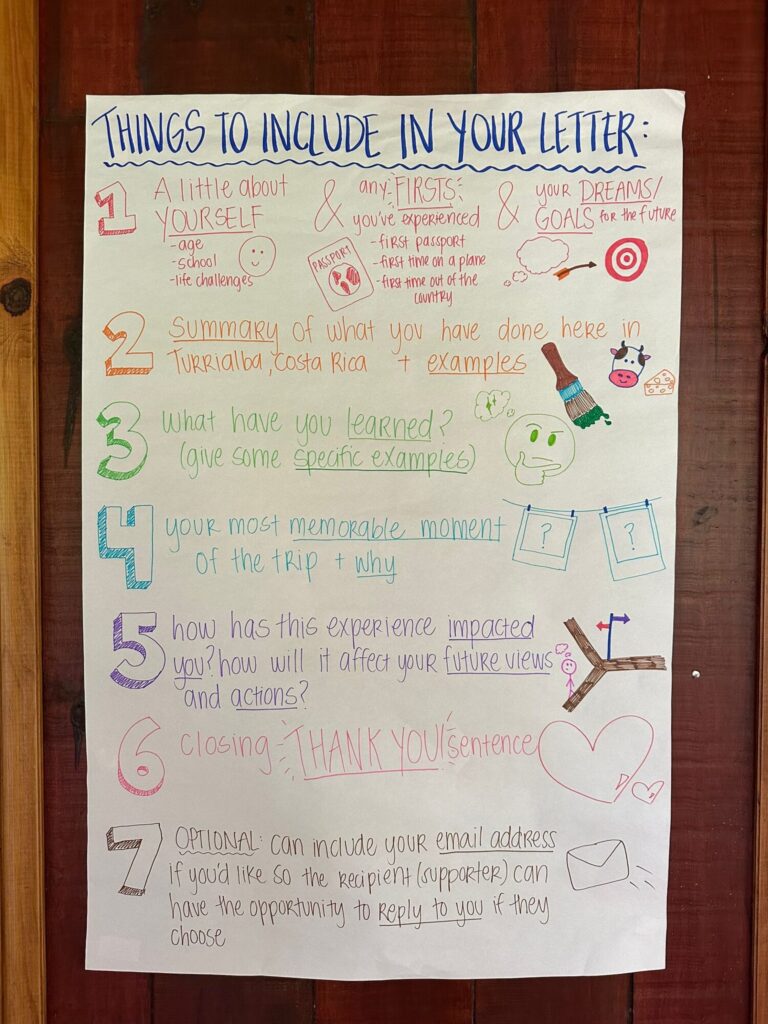 THINGS TO INCLUDE IN YOUR LETTER:
1
A little about
YOURSELF
-age
-school
-life challenges
&
any FIRSTS
you've experienced
- first passport
- first time on a plane
- first time out of the
country
PASSPORT
&
your DREAMS/
GOALS for the future
2
SUMMARY of what you have done here in
TURRIALBA, COSTA RICA + examples
3
What have you learned?
(give some specific examples)
4
your most memorable moment
of the trip + why
?
?
5
how has this experience impacted
you? how will it affect your future views
and actions?
6
closing THANK YOU! sentence
7
OPTIONAL: can include your email address
if you'd like so the recipient (supporter) can
have the opportunity to reply to you if they
choose